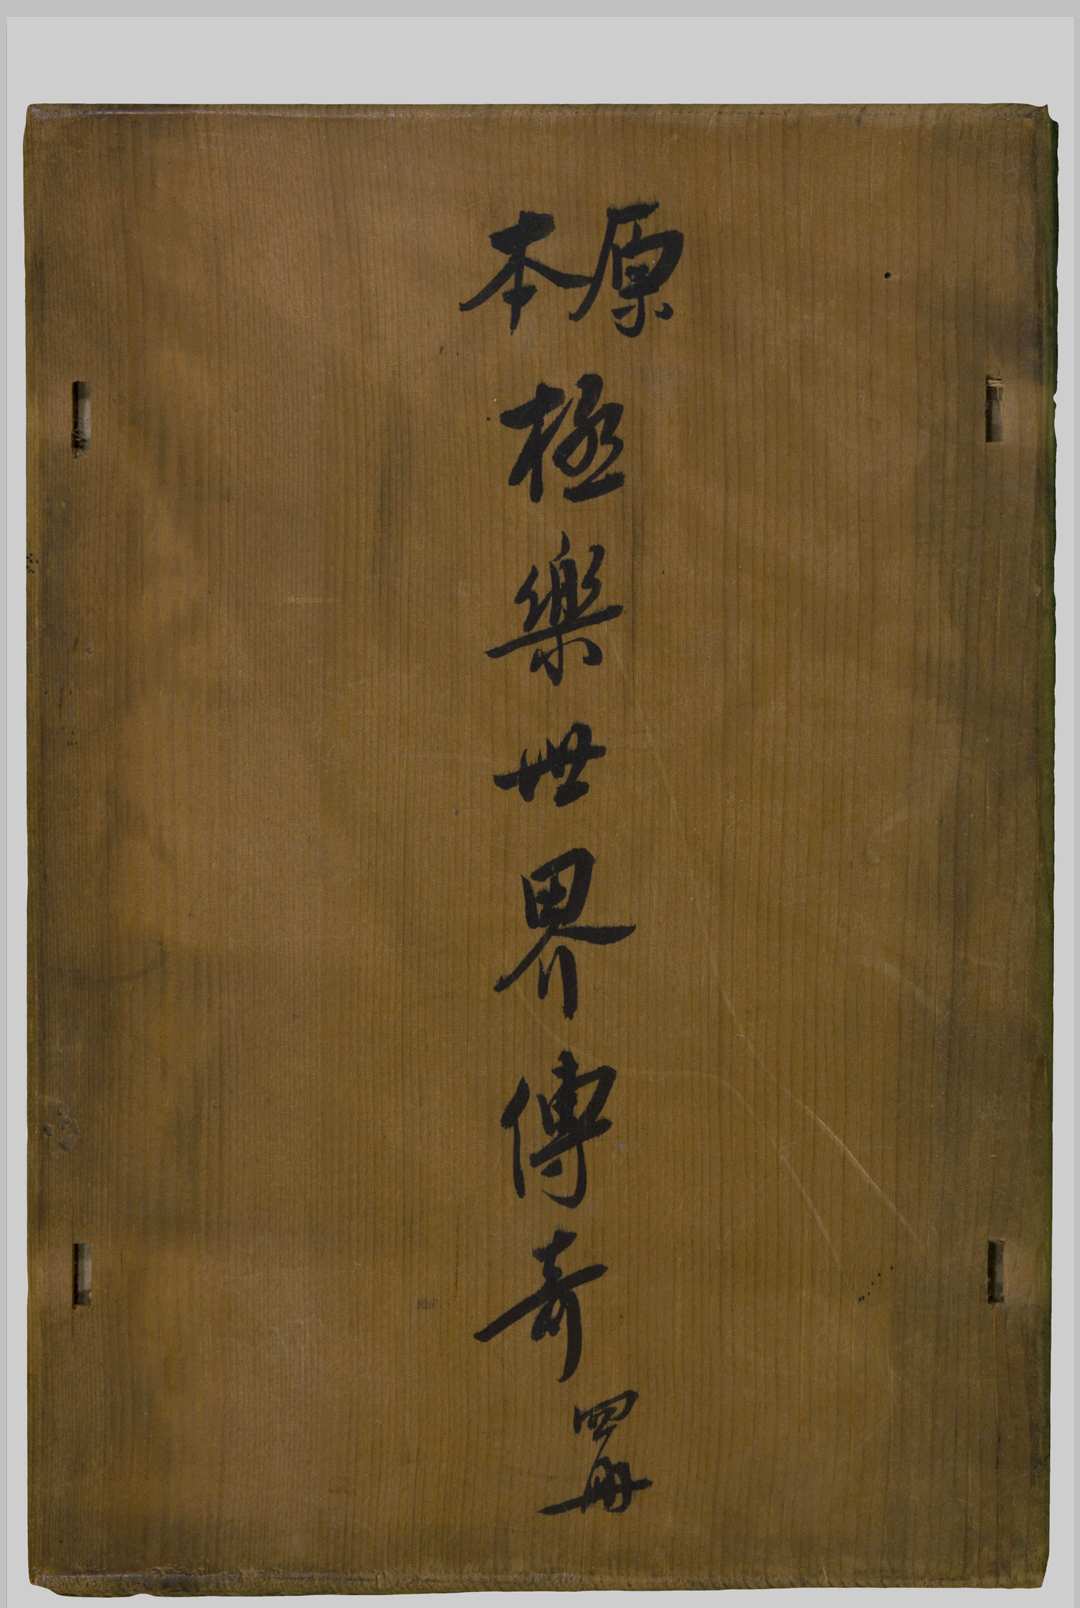 原本
極樂世界傳奇
四冊